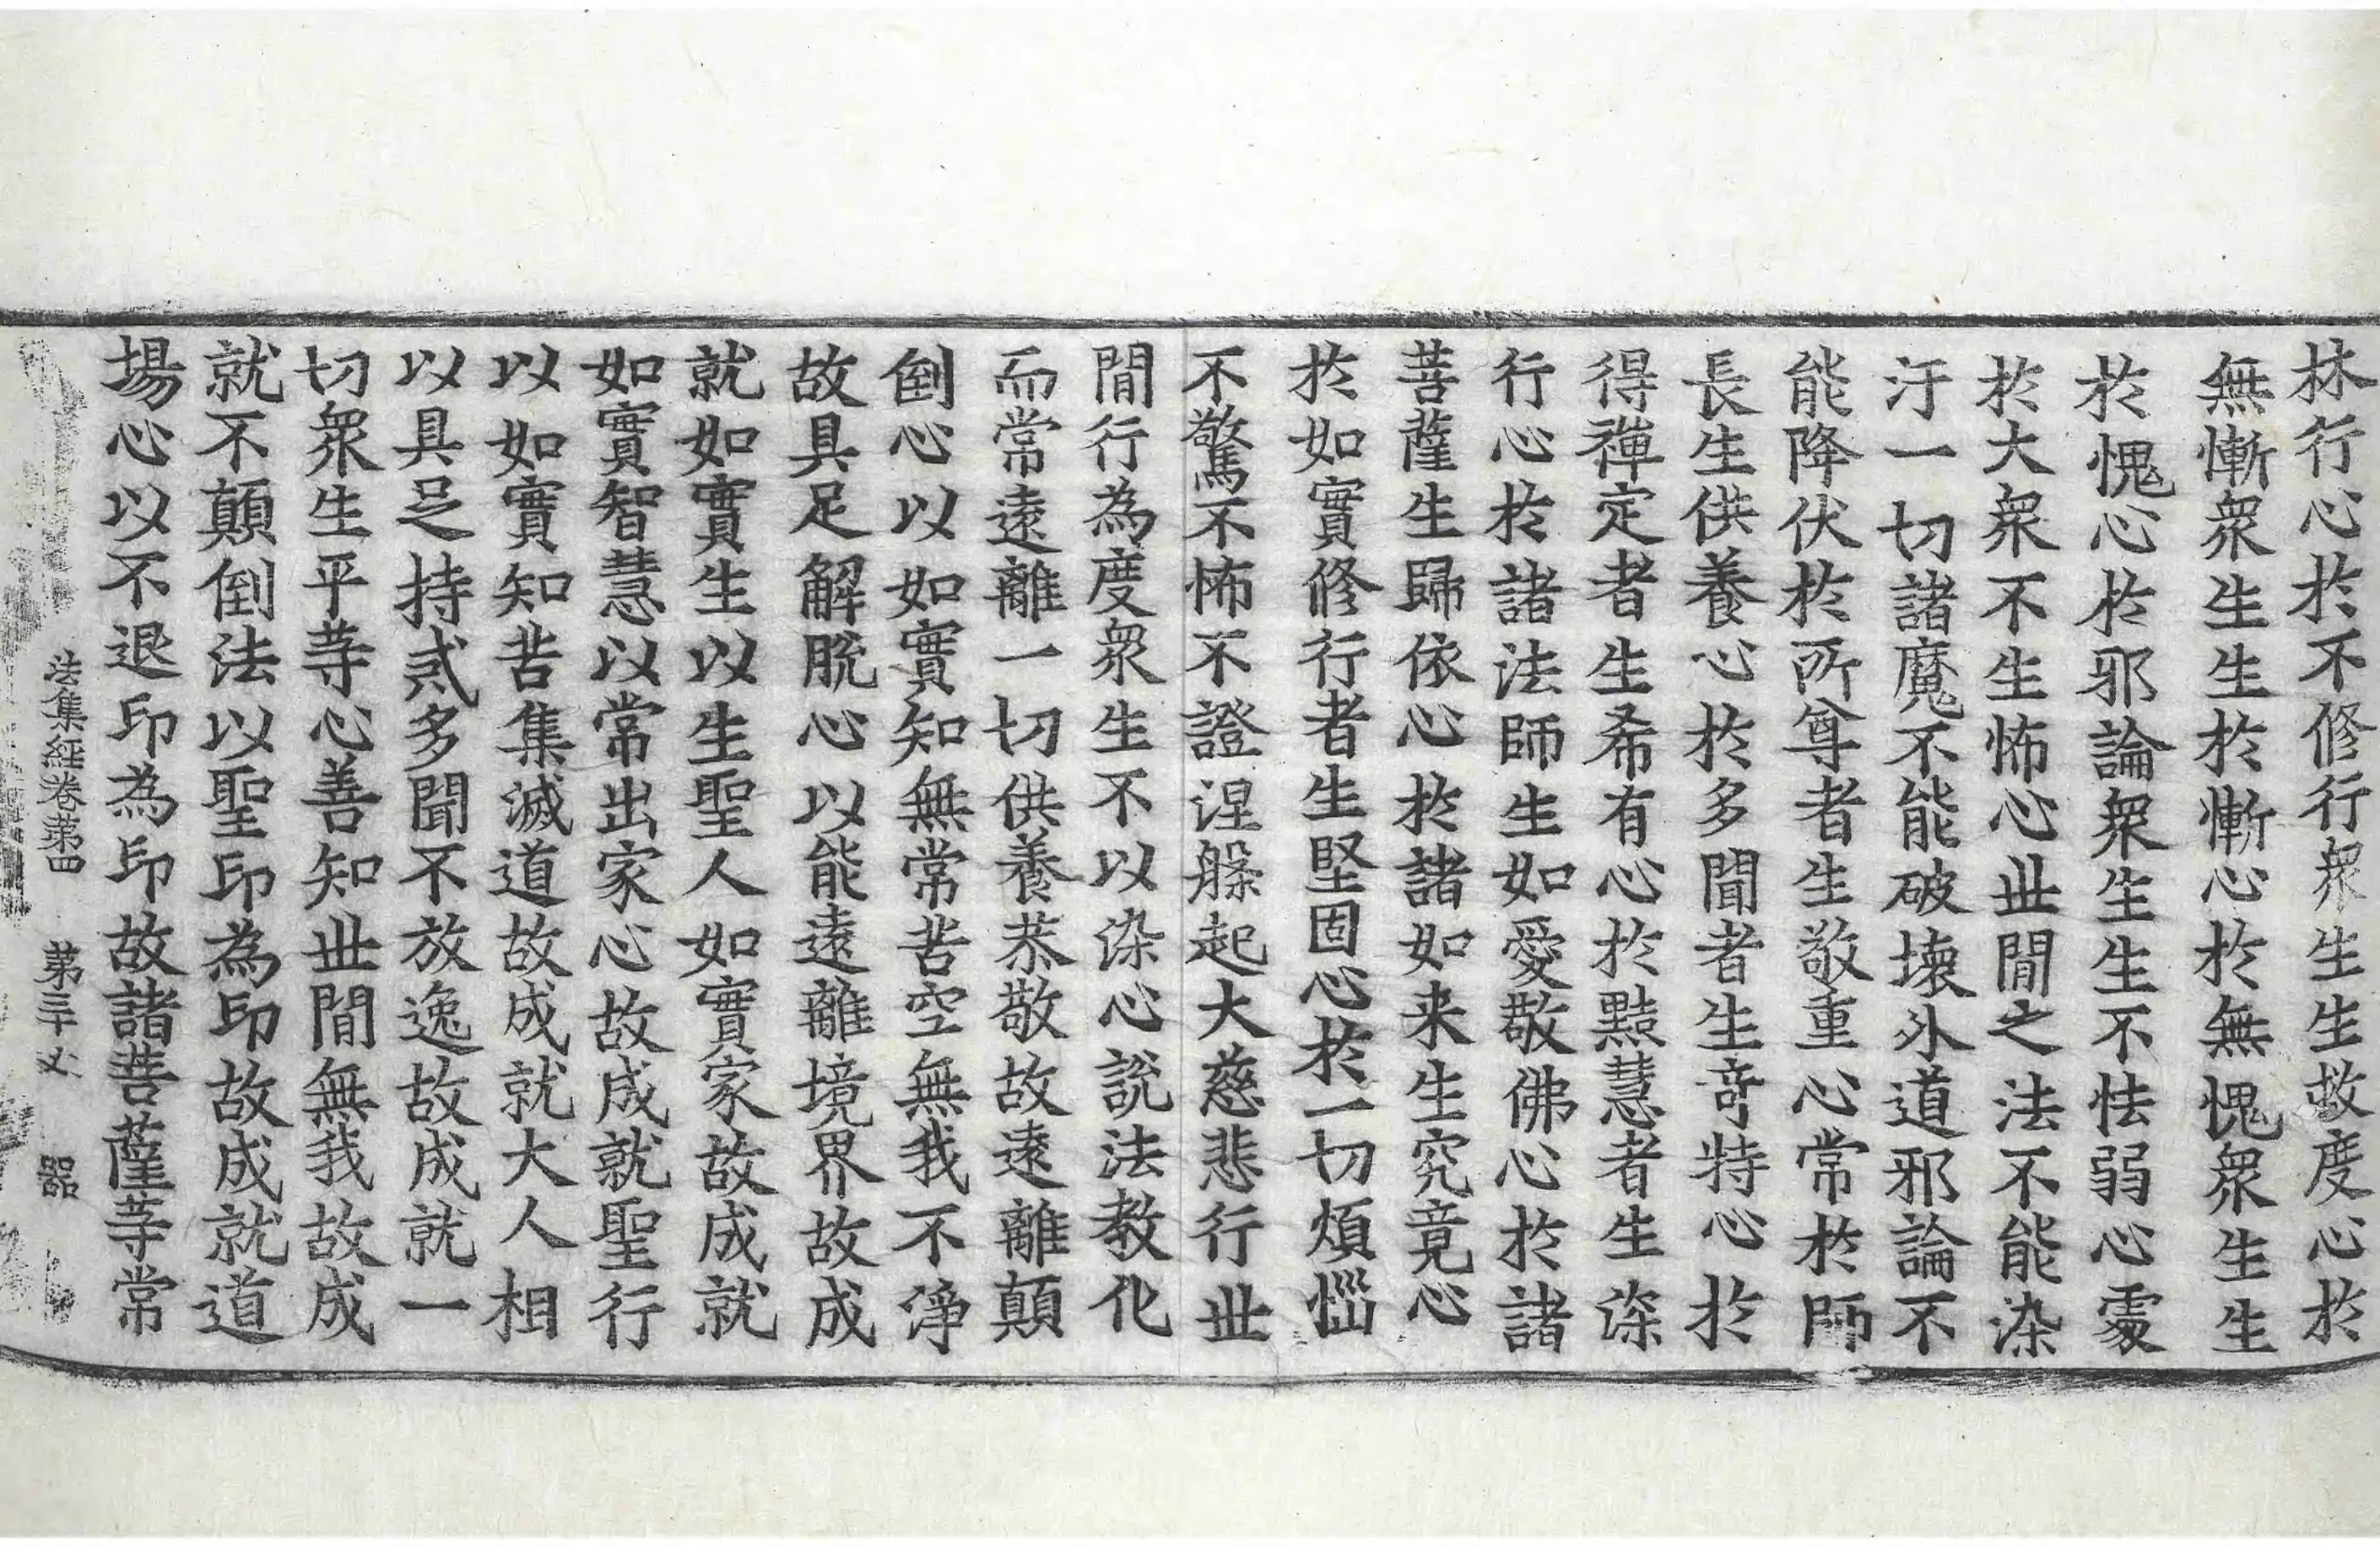 林行心於不修行衆生生救度心於
無慚衆生生於慚心於無愧衆生生
於愧心於邪論衆生生不怯弱心處
於大衆不生怖心世間之法不能染
汙一切諸魔不能破壞外道邪論不
能降伏於所尊者生敬重心常於師
長生供養心於多聞者生竒特心於
得禪定者生希有心於黠慧者生深
行心於諸法師生如愛敬佛心於諸
菩薩生歸依心於諸如来生究竟心
於如實修行者生堅固心於一切煩惱
不驚不怖不證涅槃起大慈悲行世
間行為度衆生不以染心說法教化
而常遠離一切供養恭敬故遠離顛
倒心以如實知無常苦空無我不淨
故具足解脫心以能遠離境界故成
就如實生以生聖人如實家故成就
如實智慧以常出家心故成就聖行
以如實知苦集滅道故成就大人相
以具足持戒多聞不放逸故成就一
切衆生平等心善知世間無我故成
就不顛倒法以聖印為印故成就道
場心以不退印為印故諸菩薩等常
法集經卷第四 第三十 器